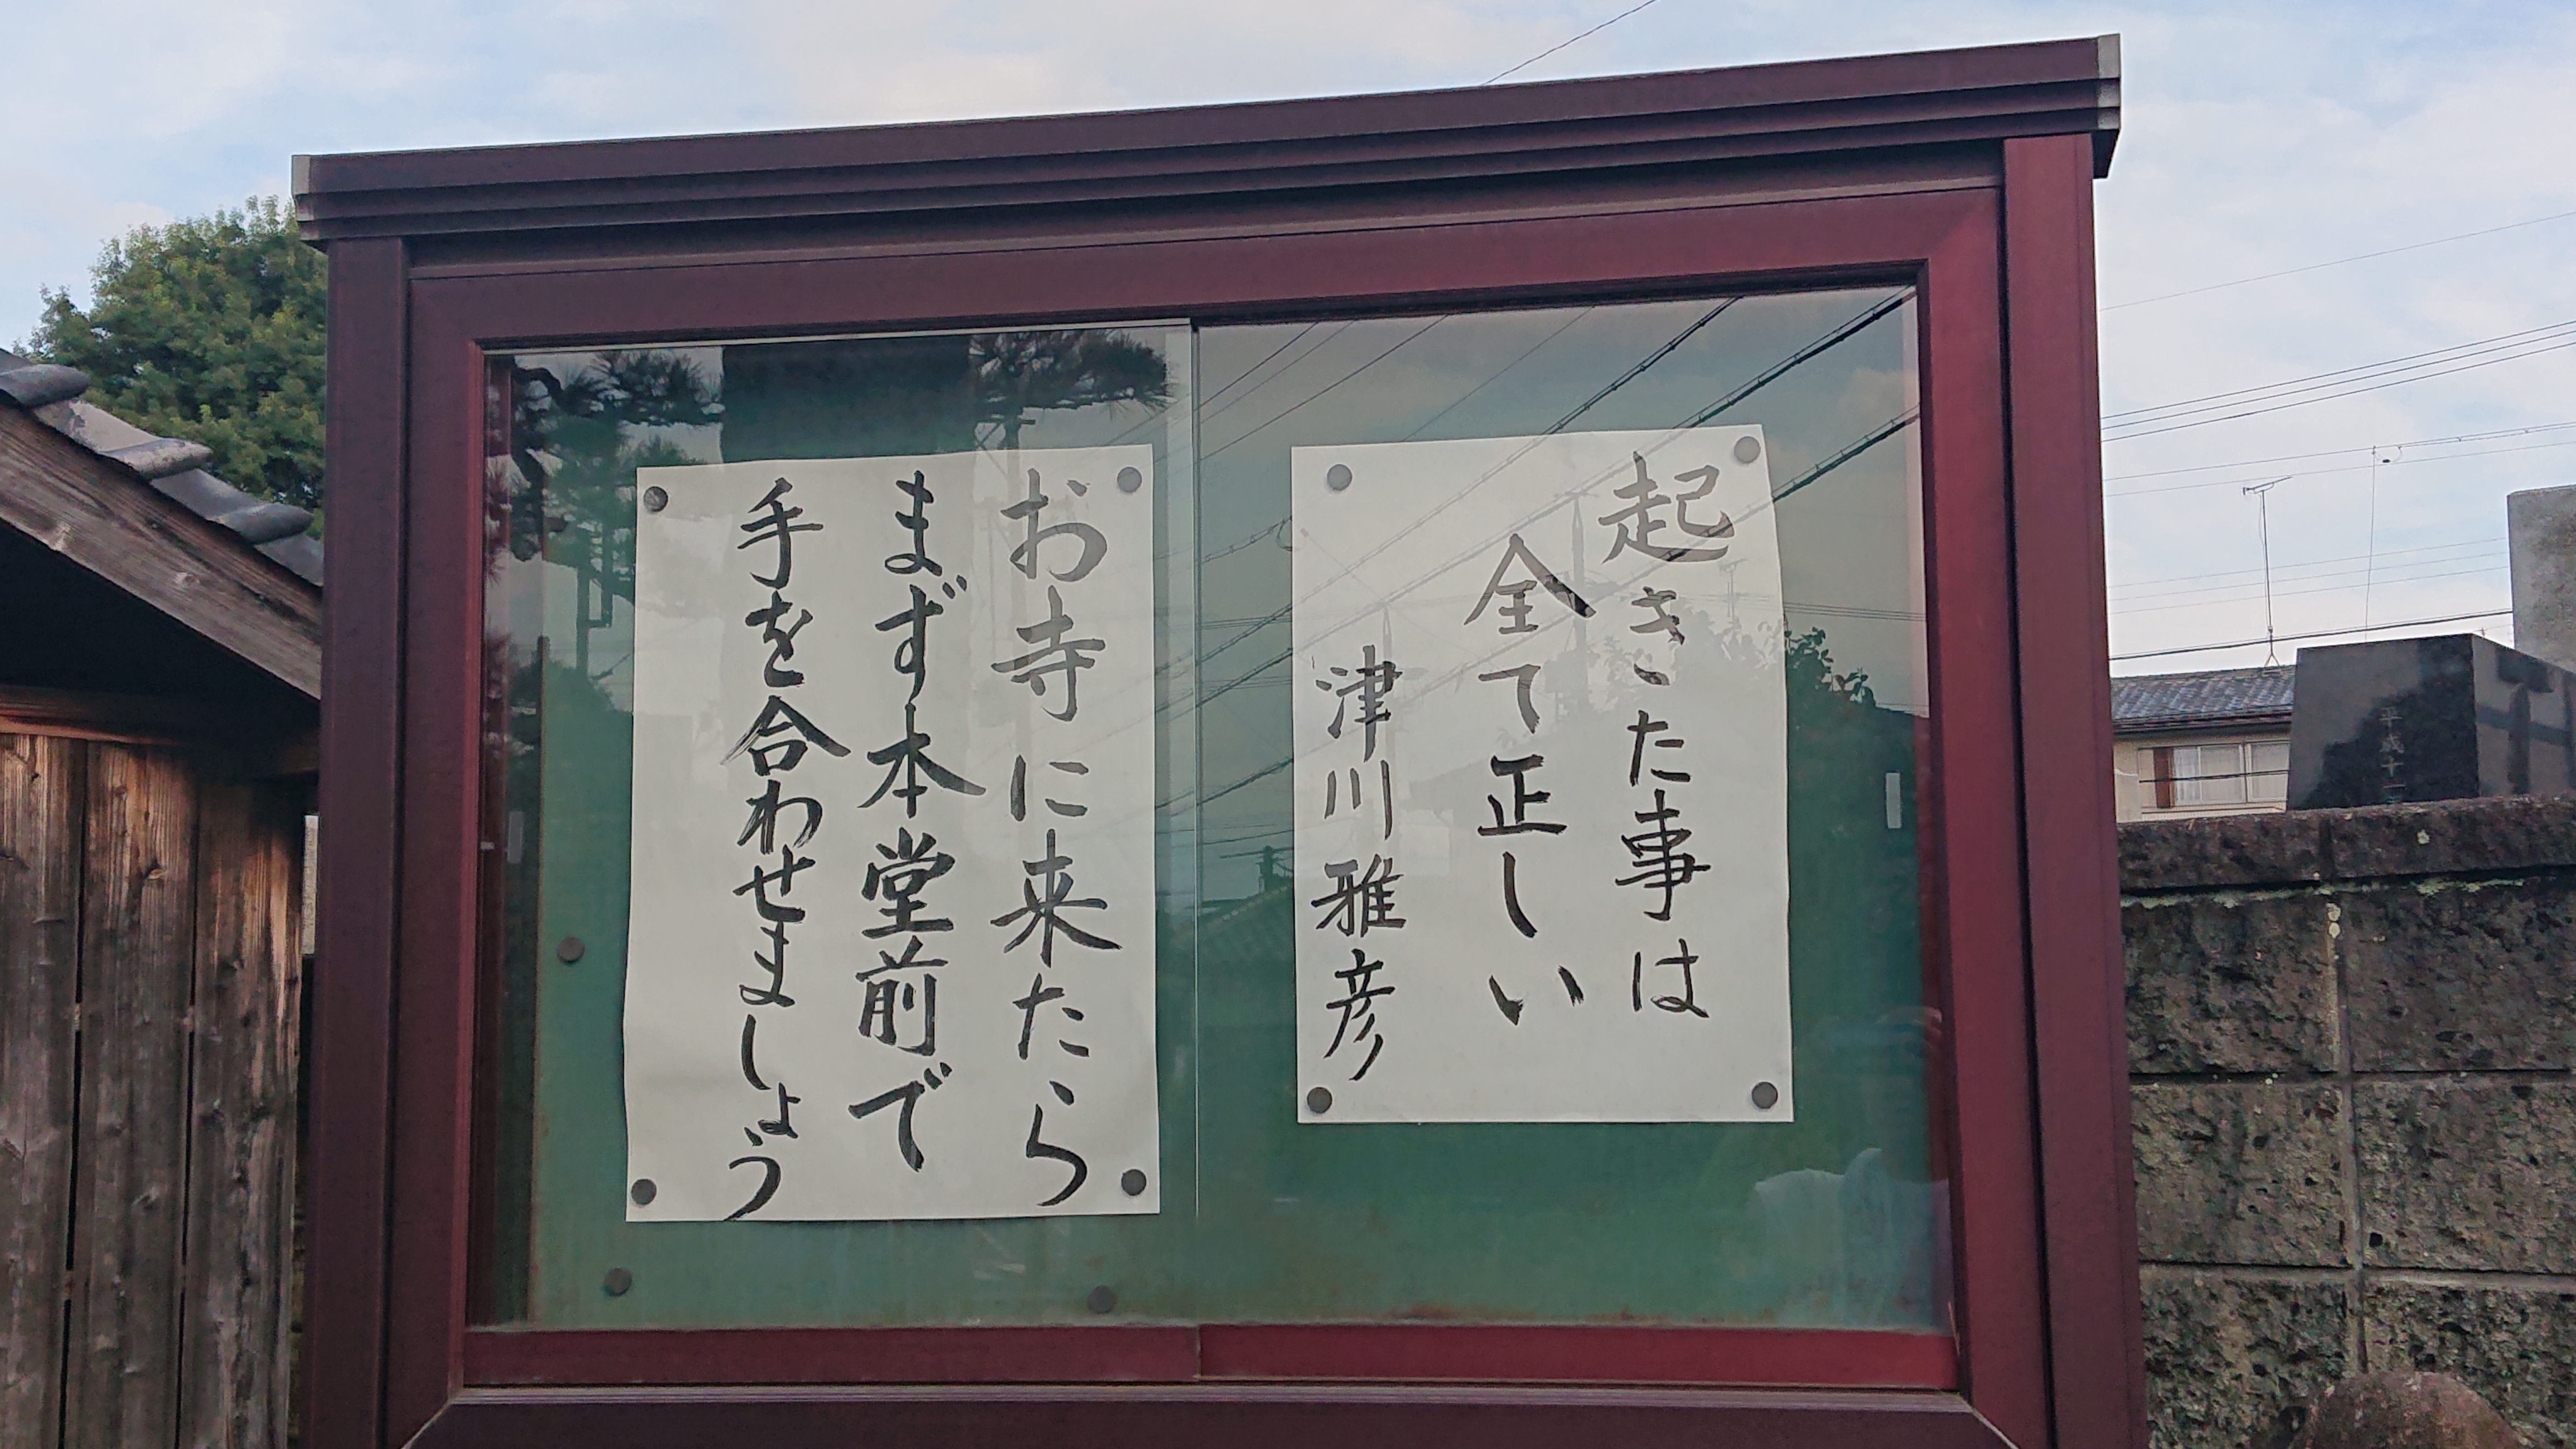 起きた事は
全て正しい
津川雅彦
お寺に来たら
まず本堂前で
手を合わせましょう
平成十一